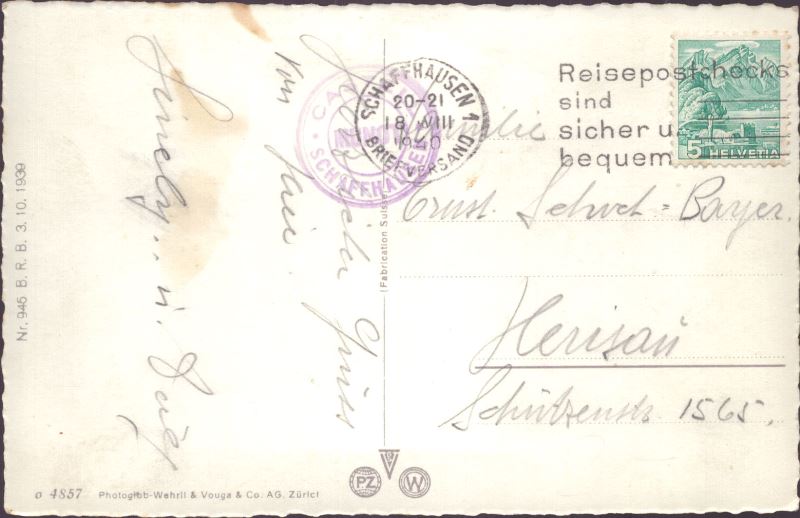 Nr. 945 B. R. B. 3. 10. 1939
von
Gruss
SCHAFFHAUSEN 1
20-21
18 VIII
1940
BRIEFVERSAND
MUNOT
SCHAFFHAUSEN
Reisepostchecks
sind
sicher u
bequem
5 HELVETIA
Familie
Ernst
Bayer.
Herisau
Schützenstr. 1565.
(Fabrication Suisse
o 4857 Photoglob-Wehrli & Vouga & Co. AG. Zürich
PZ
W